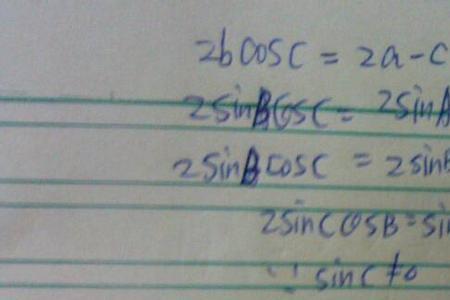 2bcosC = 2a-c
2sinBcosC = 2sinA
2sinBcosC = 2sinB
2sinCcosB = sin
∵ sinC≠0